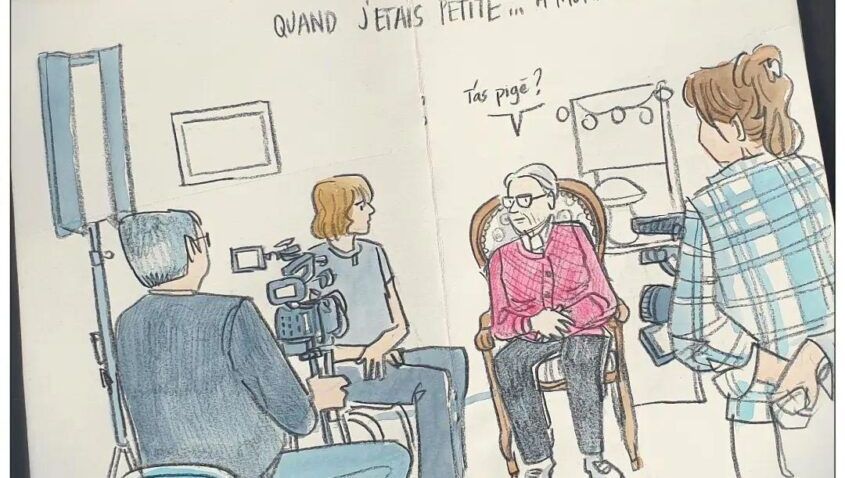 QUAND J'ETAIS PETITE... A
T'as pigé?